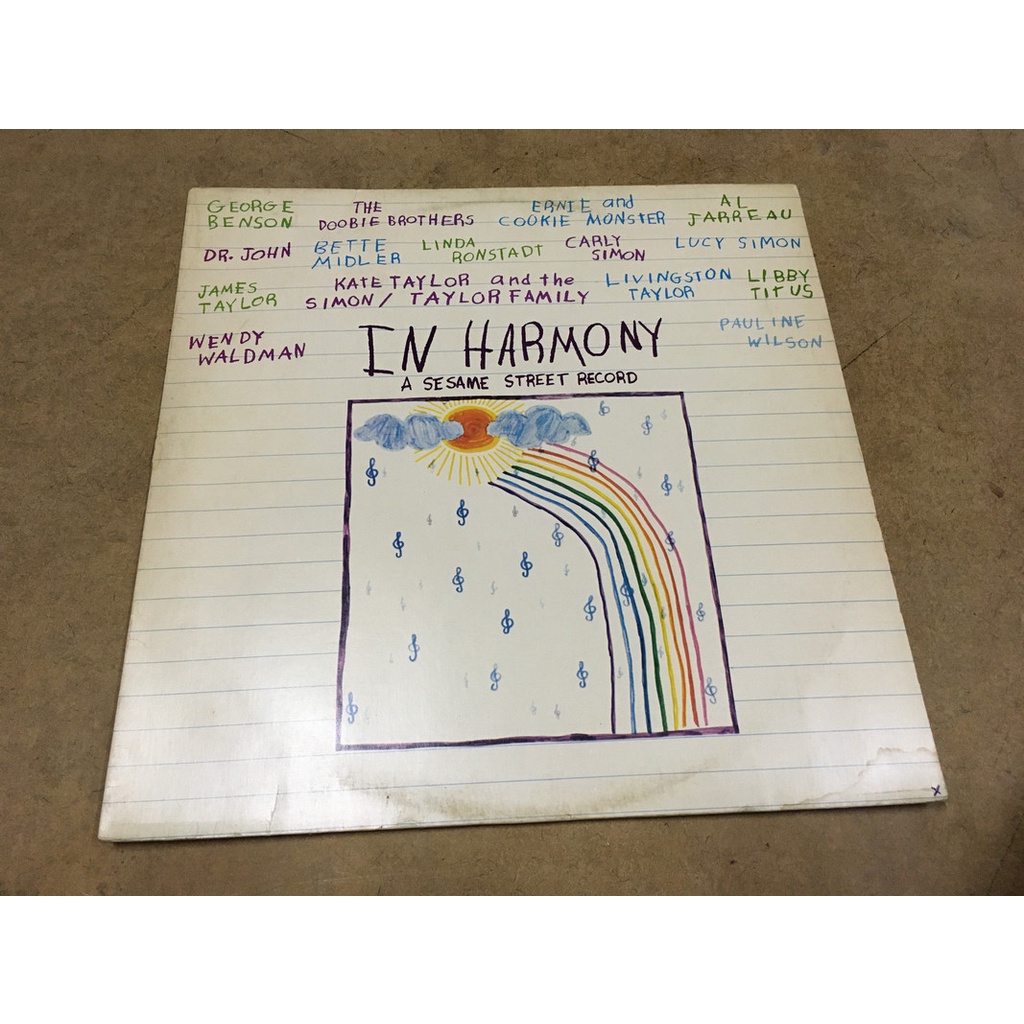 GEORGE BENSON
THE DOOBIE BROTHERS
ERNIE and COOKIE MONSTER
AL JARREAU
DR. JOHN
BETTE MIDLER
LINDA RONSTADT
CARLY SIMON
LUCY SIMON
JAMES TAYLOR
KATE TAYLOR and the SIMON / TAYLOR FAMILY
LIVINGSTON TAYLOR
LIBBY TITUS
WENDY WALDMAN
PAULINE WILSON
IN HARMONY
A SESAME STREET RECORD
x